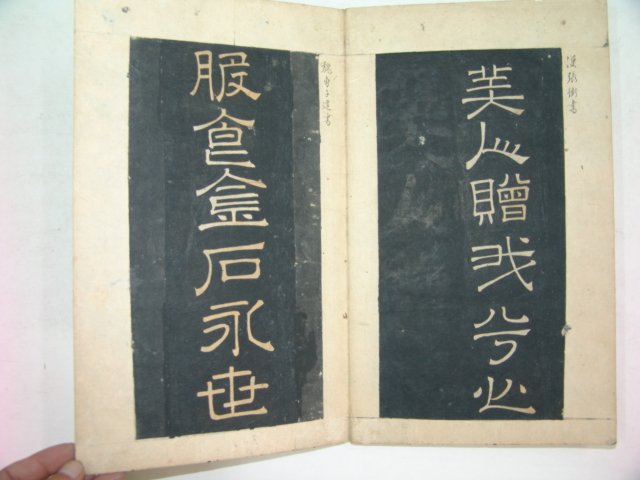 漢張衡書
美人贈我兮
魏曹子建書
服食金石永世